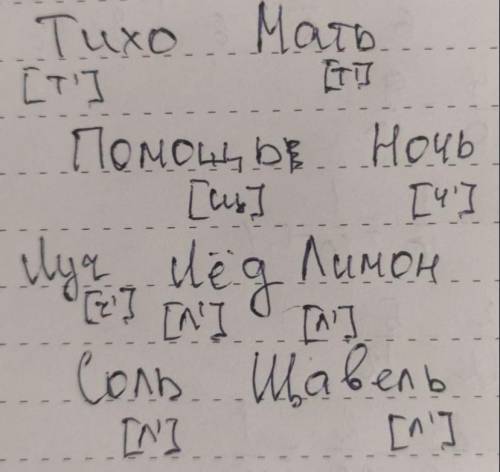 Тихо Мать
[т'] [т']
Помощь Ночь
[щ] [ч']
Луч Лёд Лимон
[ч'] [л'] [л']
Соль Щавель
[л'] [л']